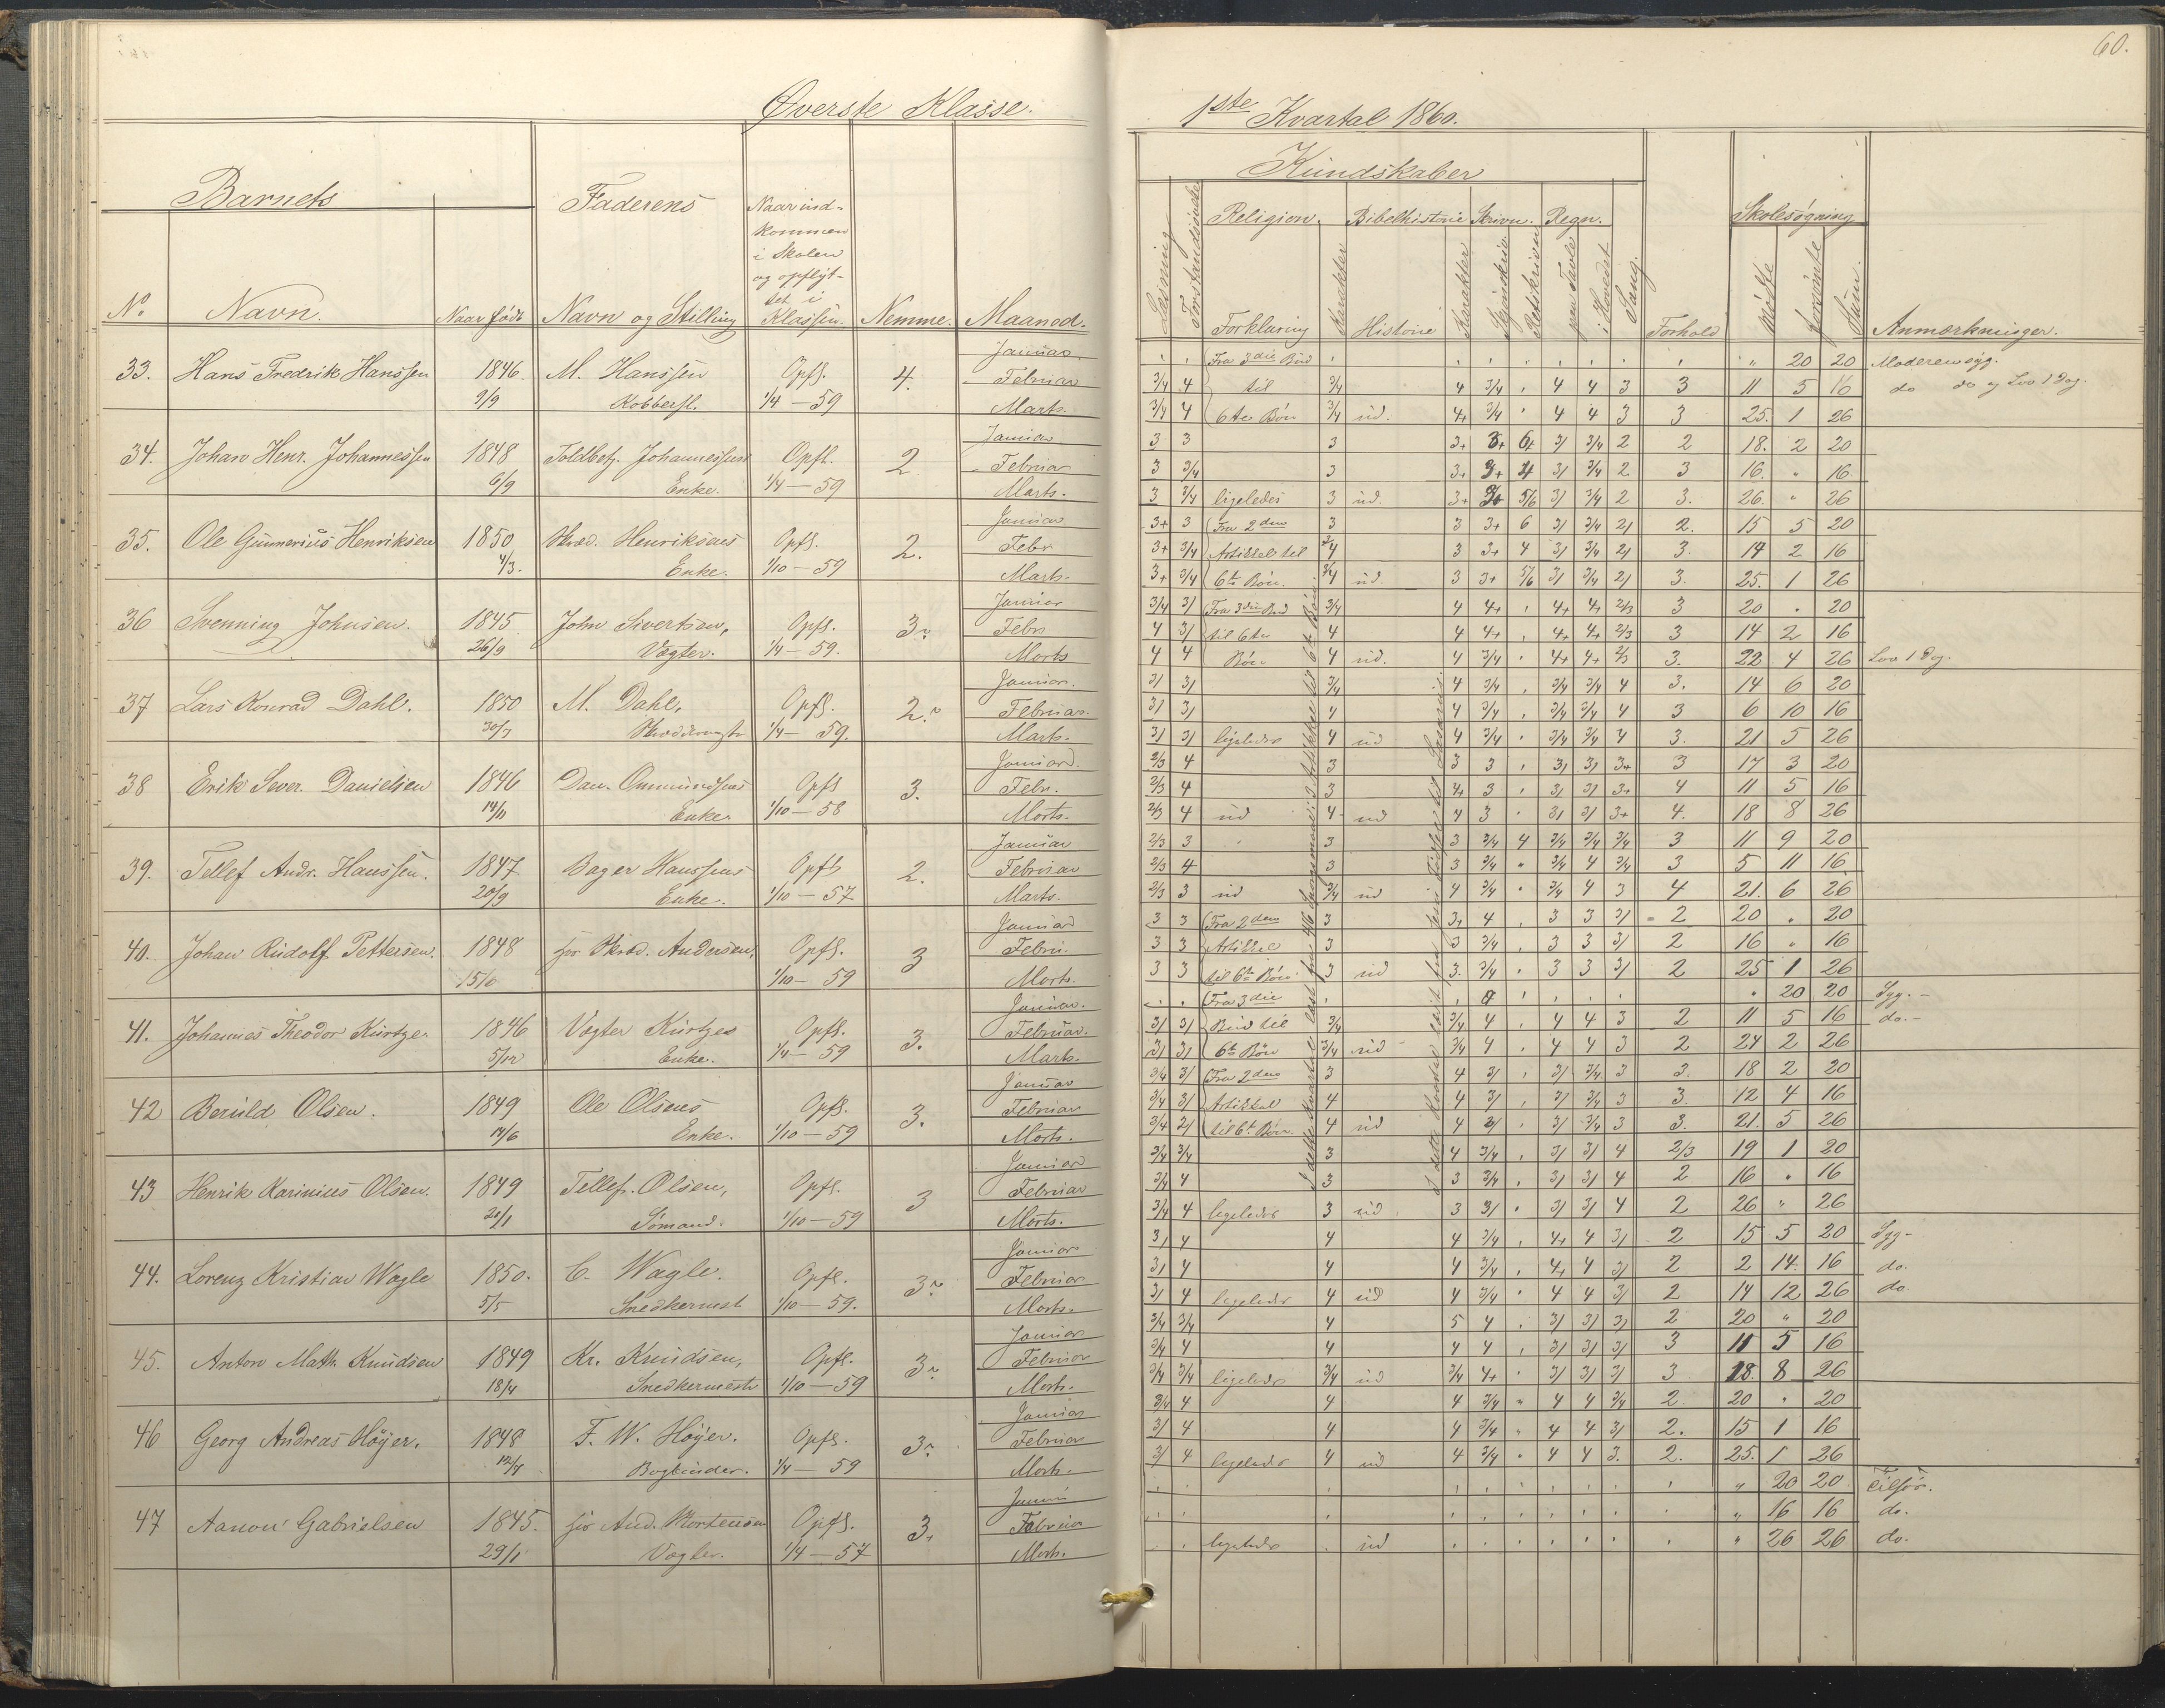 60.
Øverste Klasse.
1ste Kvartal 1860.
Barnets
Faderens
Naar ind-
kommen
i Skolen
og opflyt-
tet i
Klassen.
No
Navn.
Naar født
Navn og Stilling
Nemme.
Maaned.
Kundskaber
Religion.
Bibelhistorie
Skrivn.
Regn.
Skolesøgning
Læsning
Forklaring
Karakter
Historie
Karakter
paa Tavle
i Hovedet
Sang.
Forhold
Mødte
forsømte
Sum.
Anmærkninger.
33. Hans Fredrik Hanssen 1846. M. Hanssen Opfl. 4. Januar. Fra 3die Bud " 20 20 Moderen syg.
9/9 Kobbersl. 1/4 — 59 Februar 3/4 4 til 3/4 4 3/4 4 4 3 3 11 5 16 do do og Lov 1 Dag.
Marts. 3/4 4 6te Bøn 3/4 ud. 4+ 3/4 4 4 3 3 25. 1 26
34. Johan Henr. Johannessen 1848 Toldbetj. Johannessens Opfl. 2 Januar 3 3 3 3+ 6+ 3/ 3/4 2 2 18. 2 20
6/9 Enke. 1/4 — 59 Februar 3 3/4 3 3+ 3+ 4 3/ 3/4 2 3 16. " 16.
Marts. 3 3/4 ligeledes 3 ud. 3+ 5/6 3/ 3/4 2 3. 26. " 26
35. Ole Gunnerius Henriksen 1850 Skræd. Henriksens Opfl. 2. Januar 3+ 3 Fra 2den 3 3 3+ 6 3/ 3/4 2/ 2. 15 5 20
4/3. Enke. 1/10 — 59 Febr 3+ 3/4 Artikkel til 3/4 3 3+ 4 3/ 3/4 2/ 3. 14 2 16
Marts. 3+ 3/4 6te Bøn. 3/4 ud. 3 3+ 5/6 3/ 3/4 2/ 3. 25. 1 26
36 Svenning Johnsen. 1845 John Sivertsen, Opfl. 3. Januar 3/4 3/ Fra 3die Bud 3/4 4 4+ 4+ 4+ 2/3 3 20 " 20
26/9 Vægter. 1/4 — 59. Febr 4 3/ til 6te 4 4 4+ 4+ 4+ 2/3 3 14 2 16
Marts 4 4 Bøn 4 ud. 4 3/4 4+ 4+ 2/3 3. 22 4 26 Lov 1 Dag.
37 Lars Konrad Dahl. 1850 M. Dahl, Opfl. 2. Januar. 3/ 3/ 3/4 4 3/4 3/4 3/4 4 3. 14 6 20
30/7 Skræddermstr 1/4 — 59. Februar. 3/ 3/ 4 4 3/4 3/4 3/4 4 3 6 10 16
Marts. 3/ 3/ ligeledes 4 ud 4 3/4 3/4 3/4 4 3. 21 5 26
38 Erik Sever. Danielsen 1846 Dan. Ommundsens Opfl 3. Januar. 2/3 4 3 3 3 3/ 3/ 3+ 3 17 3 20
14/11 Enke. 1/10 — 58 Febr. 2/3 4 3 4 3 3/ 3/ 3+ 4 11 5 16
Marts. 2/3 4 ud 4 ud 4 3 3/ 3/ 3+ 4. 18 8 26
39. Tellef Andr. Hanssen. 1847 Bager Hanssens Opfl 2. Januar 2/3 3 3 3 3/4 4 3/4 3/4 3/4 3 11 9 20
20/9 Enke. 1/10 — 57 Februar 2/3 4 3 3 3/4 " 3/4 4 3/4 3 5 11 16
Marts. 2/3 3 ud 3/4 ud 4 3/4 3/4 4 3 4 21. 6 26
40. Johan Rudolf Pettersen. 1848 for Skræd. Andersen, Opfl. 3 Januar 3 3 Fra 2den 3 3+ 4 3 3 3/ 2 20 " 20
1/10 — 59 Febru. 3 3 Artikkel 3 3 3/4 3 3 3/ 2 16 " 16
Marts. 3 3 til 6te Bøn 3 ud 3. 3/4 3 3 3/ 2 25 1 26
41. Johannes Theodor Kurtze. 1846 Vægter Kurtzes Opfl. 3. Januar. Fra 3die 20 20 Syg.
5/12 Enke. 1/4 — 59 Februar. 3/ 3/ Bud til 3/4 3/4 4 4 4 3 2 11 5 16 do.
Marts. 3/ 3/ 6te Bøn 3/4 ud 3/4 4 4 4 3 2 24 2 26
42 Beruld Olsen. 1849 Ole Olsens Opfl. 3. Januar 3/4 3/ Fra 2den 3 4 3/ 3/ 3/4 3 3. 18 2 20
14/6 Enke. 1/10 — 59 Februar 3/4 3/ Artikkel 4 4 3/ 3/ 3/4 3 3. 12 4 16
Marts. 3/4 2/ til 6te Bøn. 4 ud 4 3/ 3/ 3/4 3 3. 21. 5 26
43 Henrik Karinius Olsen. 1849 Tellef. Olsen, Opfl. 3 Januar 3/4 3/4 3 4 3/4 3/ 3/ 4 2/3 19 1 20
20/1 Sømand. 1/10 — 59 Februar 3/4 4 3 3 3/4 3/ 3/ 4 2 16 " 16
Marts. 3/4 4 ligeledes 3 ud 3 3/ 3/ 3/ 4 2 26 " 26
44. Lorenz Kristian Wagle 1850. C. Wagle. Opfl. 3. Januar 3/ 4 4 4 3/4 4+ 4 3/ 2 15 5 20 Syg
5/5 Snedkermst 1/10 — 59. Februar 3/ 4 4 4 3/4 4+ 4 3/ 2 2 14 16 do.
Marts. 3/ 4 ligeledes 4 ud 4 3/4 4 4 3/ 2 14 12 26 do
45. Anton Math. Knudsen 1849 Kr. Knudsen, Opfl. 3. Januar 3/4 3/4 4 5 4 3/ 3/ 3/ 2 20 " 20
18/4 Snedkermestr 1/10 — 59 Februar 3/4 4 4 4 4 3/ 3/ 3/ 3 11 5 16
Marts. 3/4 3/4 ligeledes 3/4 ud 3/4 4+ 3/ 3/ 3/ 3 18. 8 26
46 Georg Andreas Höyer. 1848 F. W. Höyer. Opfl. 3. Januar 3/4 4 4 4 3/4 " 4 4 3/4 2. 20 " 20
12/7 Bogbinder. 1/4 — 59 Februar 3/ 4 4 4 3/4 " 4 4 3/ 2. 15 1 16
Marts. 3/ 4 ligeledes 4 ud 4 3/4 4 4 3. 2. 25. 1 26
47 Aanon Gabrielsen 1845. for And. Mortensen Opfl. 3. Januar " 20 20 Tilsøs.
29/1 Vægter. 1/4 — 57 Februar " 16 16 do.
Marts. ligeledes ud " 26 26 do.